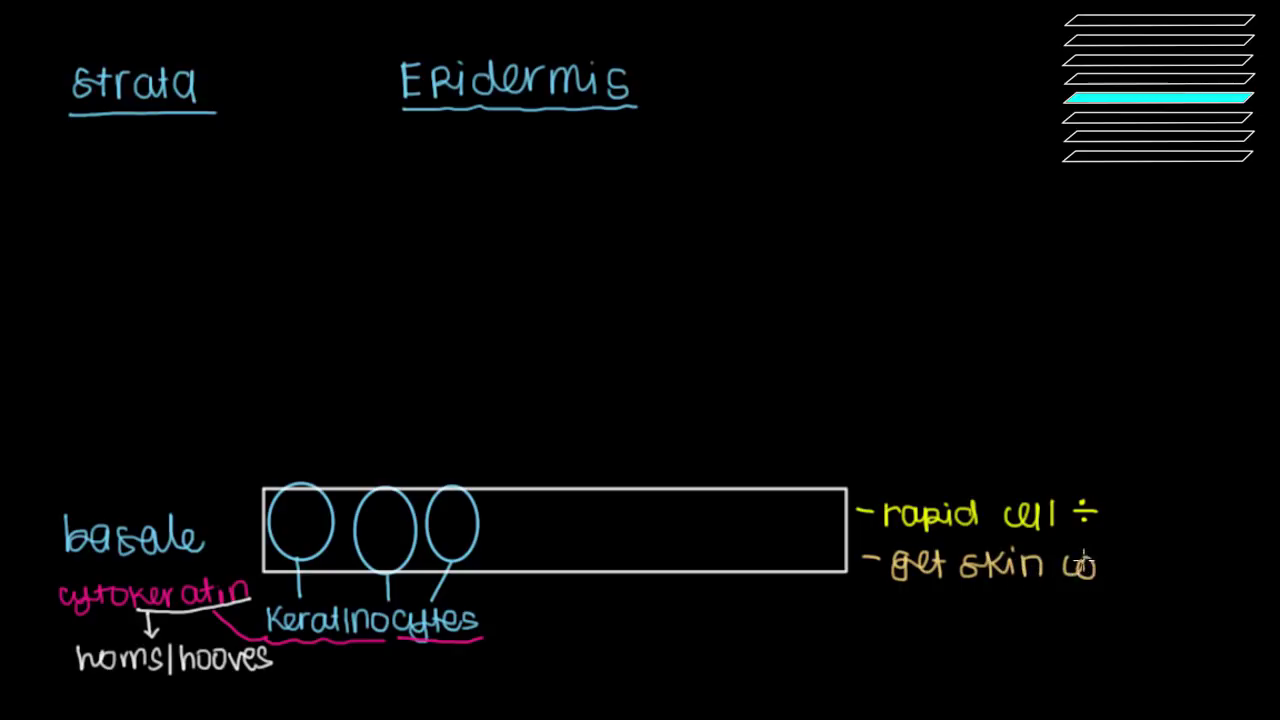 Strata
Epidermis
basale
cytokeratin
horns/hooves
keratinocytes
- rapid cell ÷
- get skin co